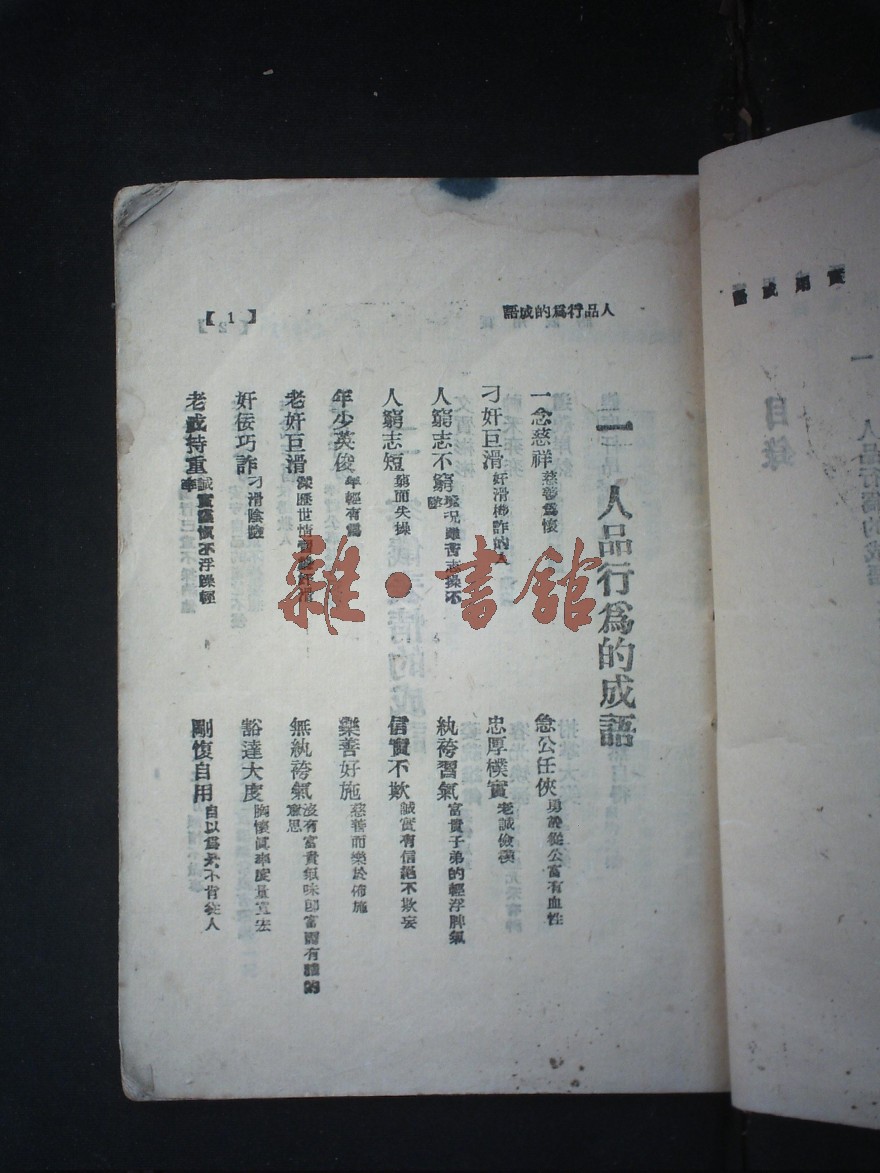 人品行爲的成語
【1】
一 人品行爲的成語
一念慈祥 慈善爲懷
刁奸巨滑 奸滑
人窮志不窮 境况難苦志操不
人窮志短 窮而失操
年少英俊 年輕有爲
老奸巨滑 深歷世情
奸佞巧詐 刁滑陰險
老成持重 誠實謹慎不浮躁輕率
急公任俠 勇於從公富有血性
忠厚樸實 老誠儉樸
紈袴習氣 富貴子弟的輕浮脾氣
信實不欺 誠實有信絕不欺妄
樂善好施 慈善而樂於佈施
無紈袴氣 沒有富貴氣味即富而有禮的意思
豁達大度 胸懷眞率度量宣宏
剛愎自用 自以爲是不肯從人
實用成語
目錄
一 人品行爲的成語
雜·書館